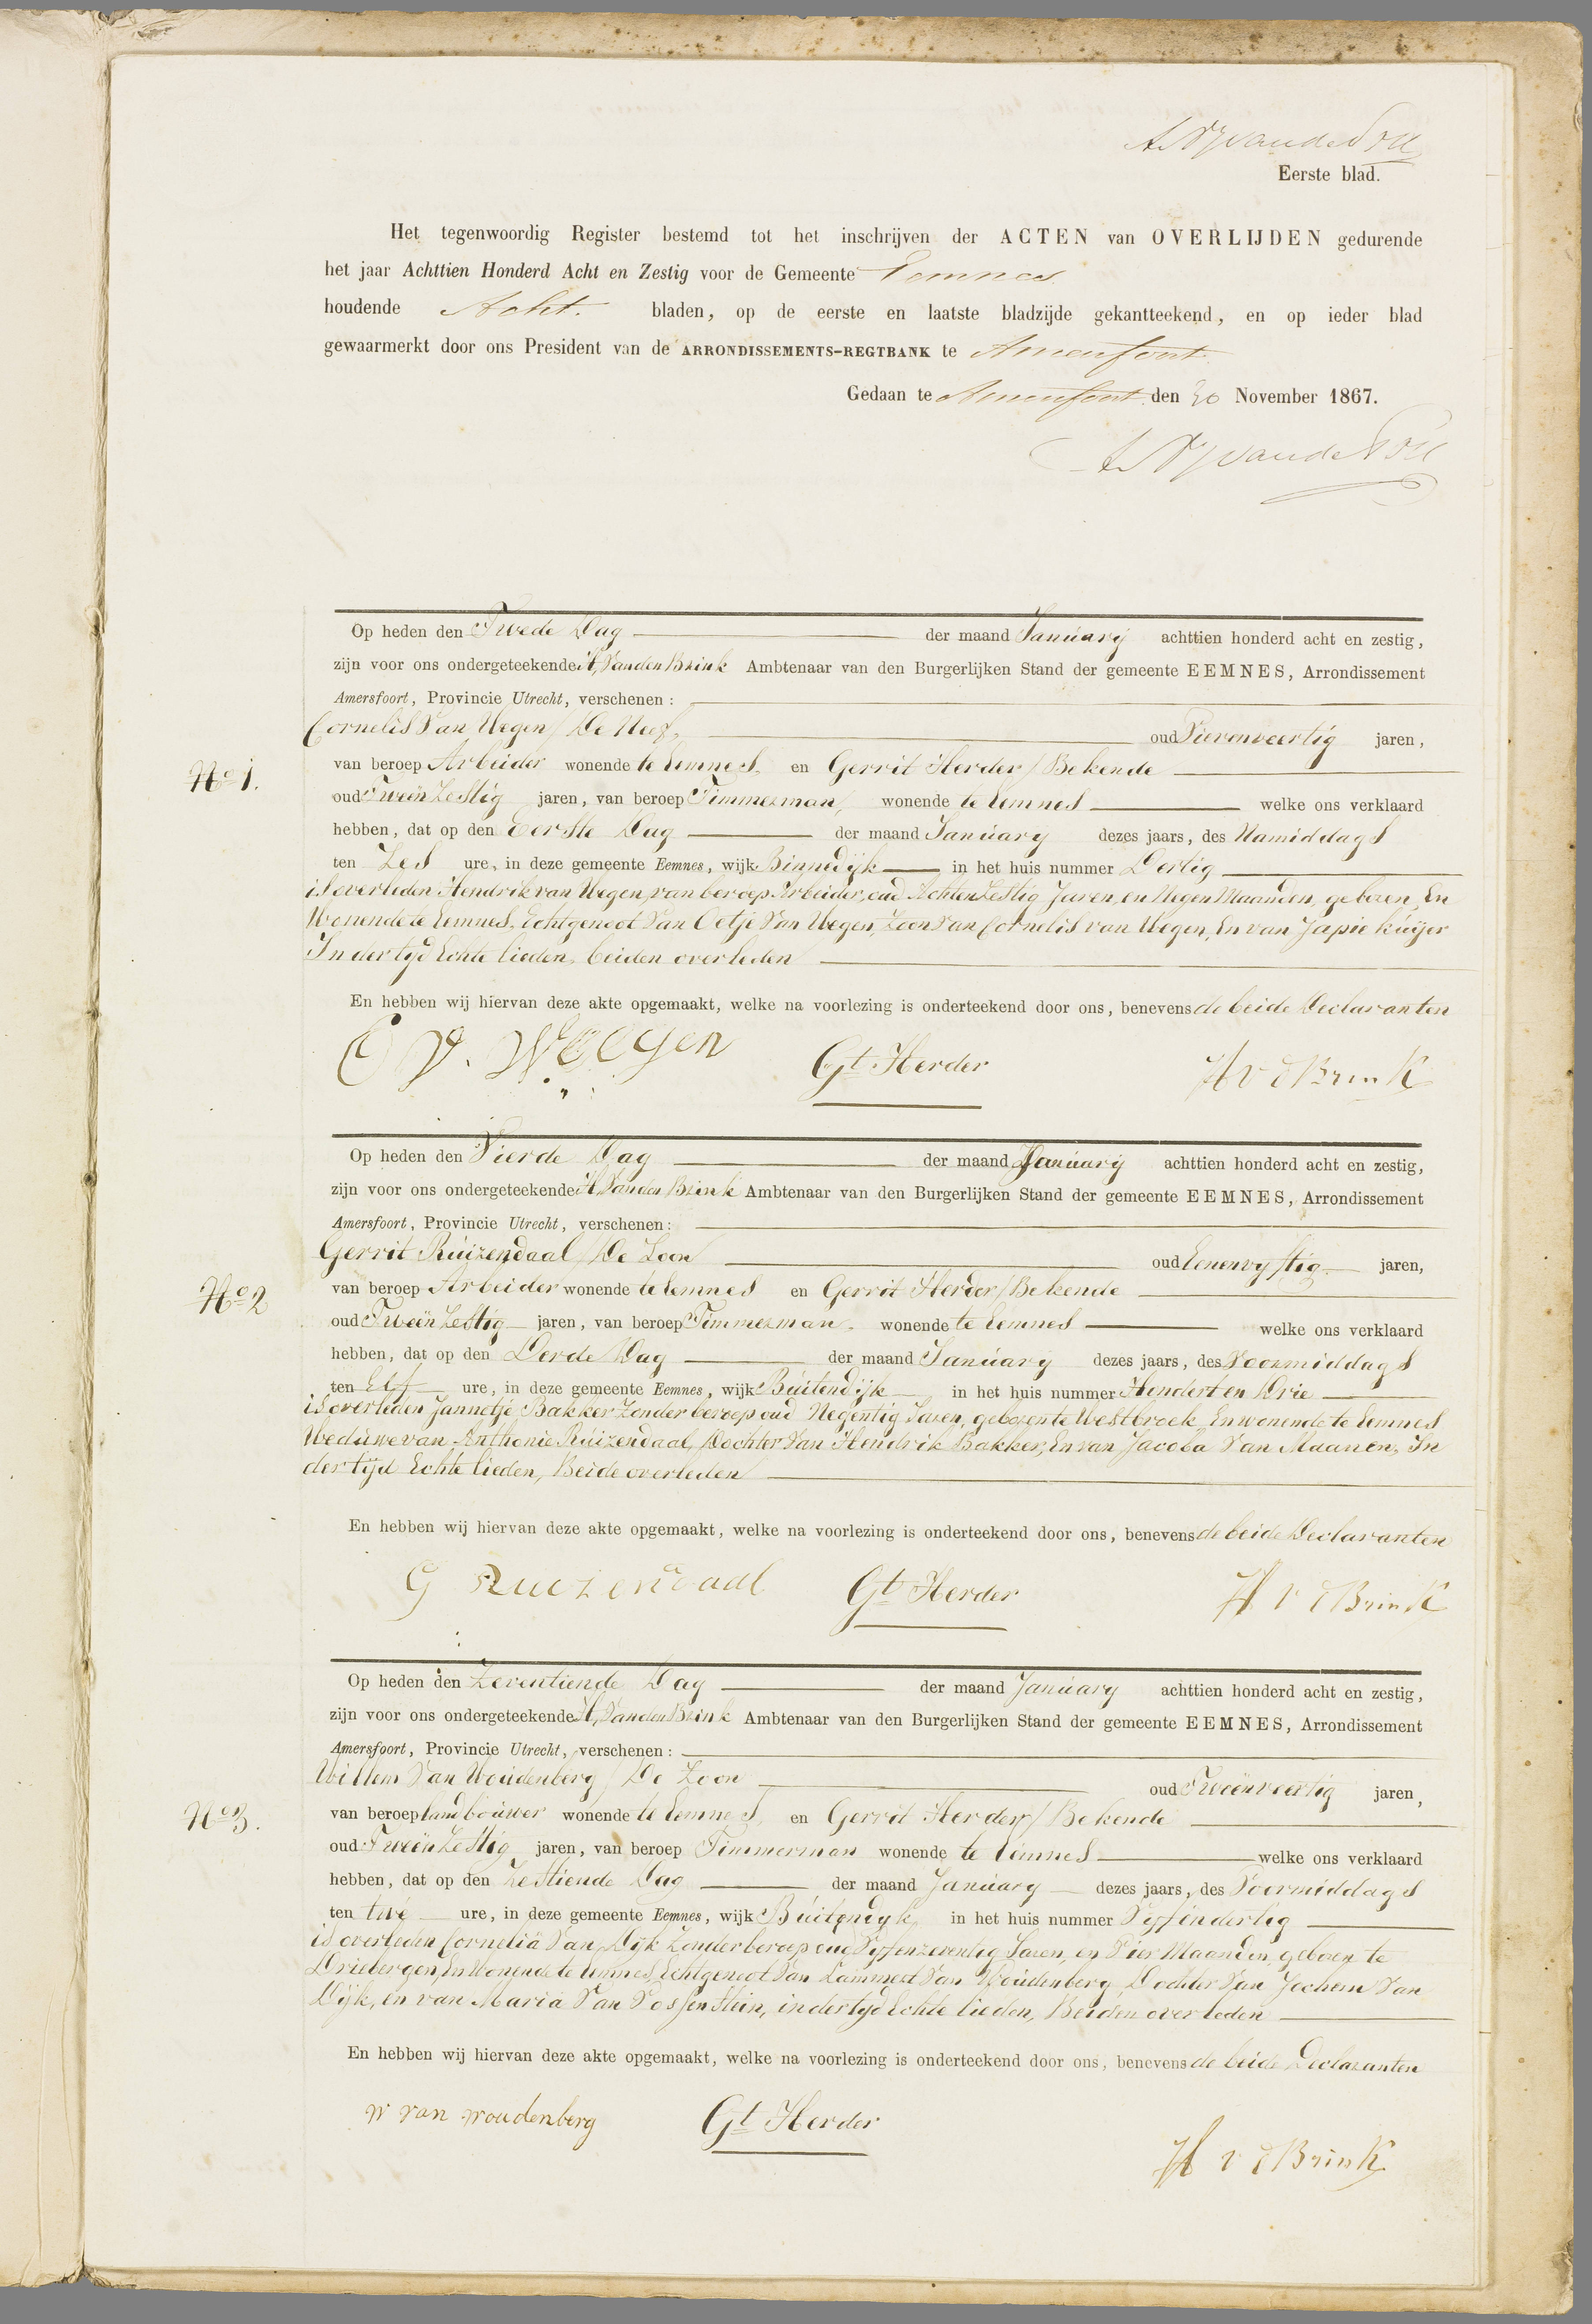 Eerste blad.
Het tegenwoordig Register bestemd tot het inschrijven der ACTEN van OVERLIJDEN gedurende
het jaar Achttien Honderd Acht en Zestig voor de Gemeente Eemnes
houdende Acht. bladen, op de eerste en laatste bladzijde gekantteekend, en op ieder blad
gewaarmerkt door ons President van de ARRONDISSEMENTS-REGTBANK te Amersfoort
Gedaan te Amersfoort den 30 November 1867.
Op heden den Twede Dag der maand January achttien honderd acht en zestig,
zijn voor ons ondergeteekende H, Van den Brink Ambtenaar van den Burgerlijken Stand der gemeente EEMNES, Arrondissement
Amersfoort, Provincie Utrecht, verschenen:
Cornelis Van Wegen / De Neef, oud Vierenveertig jaren,
No 1.
van beroep Arbeider wonende te Eemnes, en Gerrit Herder / Bekende
oud Tweën Zestig jaren, van beroep Timmerman, wonende te Eemnes welke ons verklaard
hebben, dat op den Eerste Dag der maand January dezes jaars, des Namiddags
ten Zes ure, in deze gemeente Eemnes, wijk Binnedijk in het huis nummer Dertig
is overleden Hendrik van Wegen, van beroep Arbeider, oud Achten Zestig Jaren, en Negen Maanden, geboren, En
Wonende te Eemnes, Echtgenoot Van Oetje Van Wegen, Zoon Van Cornelis van Wegen, En van Japie Kuijer
In der tyd Echte lieden, beiden overleden
En hebben wij hiervan deze akte opgemaakt, welke na voorlezing is onderteekend door ons, benevens de beide Declaranten
C V. Weegen Gt Herder H v d Brink
Op heden den Vierde Dag der maand January achttien honderd acht en zestig,
zijn voor ons ondergeteekende H, Van den Brink Ambtenaar van den Burgerlijken Stand der gemeente EEMNES, Arrondissement
Amersfoort, Provincie Utrecht, verschenen:
Gerrit Ruizendaal / De Zoon oud Eenenvyftig jaren,
No 2
van beroep Arbeider wonende te Eemnes en Gerrit Herder / Bekende
oud Tweën Zestig jaren, van beroep Timmerman. wonende te Eemnes welke ons verklaard
hebben, dat op den Derde Dag der maand January dezes jaars, des Voormiddags
ten Elf ure, in deze gemeente Eemnes, wijk Buitendijk in het huis nummer Hondert en Drie
is overleden Jannetje Bakker Zonder beroep oud Negentig Jaren, geboren te Westbroek, En wonende te Eemnes
Weduwe van Anthonie Ruizendaal, Dochter Van Hendrik Bakker, En van Jacoba Van Maanen, In
der tijd Echte lieden, Beide overleden
En hebben wij hiervan deze akte opgemaakt, welke na voorlezing is onderteekend door ons, benevens de beide Declaranten
G Ruizendaal Gt Herder H v d Brink
Op heden den Zeventiende Dag der maand January achttien honderd acht en zestig,
zijn voor ons ondergeteekende H, Van den Brink Ambtenaar van den Burgerlijken Stand der gemeente EEMNES, Arrondissement
Amersfoort, Provincie Utrecht, verschenen:
Willem Van Woudenberg / De Zoon oud Tweënveertig jaren,
No 3.
van beroep landbouwer wonende te Eemnes, en Gerrit Herder / Bekende
oud Tweën Zestig jaren, van beroep Timmerman wonende te Eemnes welke ons verklaard
hebben, dat op den Zestiende Dag der maand January dezes jaars, des Voormiddags
ten twe ure, in deze gemeente Eemnes, wijk Buitendyk in het huis nummer Vyfendertig
is overleden Cornelia Van Dijk Zonder beroep oud Vyfenzeventig Jaren, en Vier Maanden, geboren te
Driebergen, En Wonende te Eemnes, Echtgenoot Van Lammert Van Woudenberg, Dochter Van Jochem Van
Dijk, en van Maria Van Vossenstein, in der tyd Echte lieden, Beiden overleden
En hebben wij hiervan deze akte opgemaakt, welke na voorlezing is onderteekend door ons, benevens de beide Declaranten
w van woudenberg Gt Herder H v d Brink